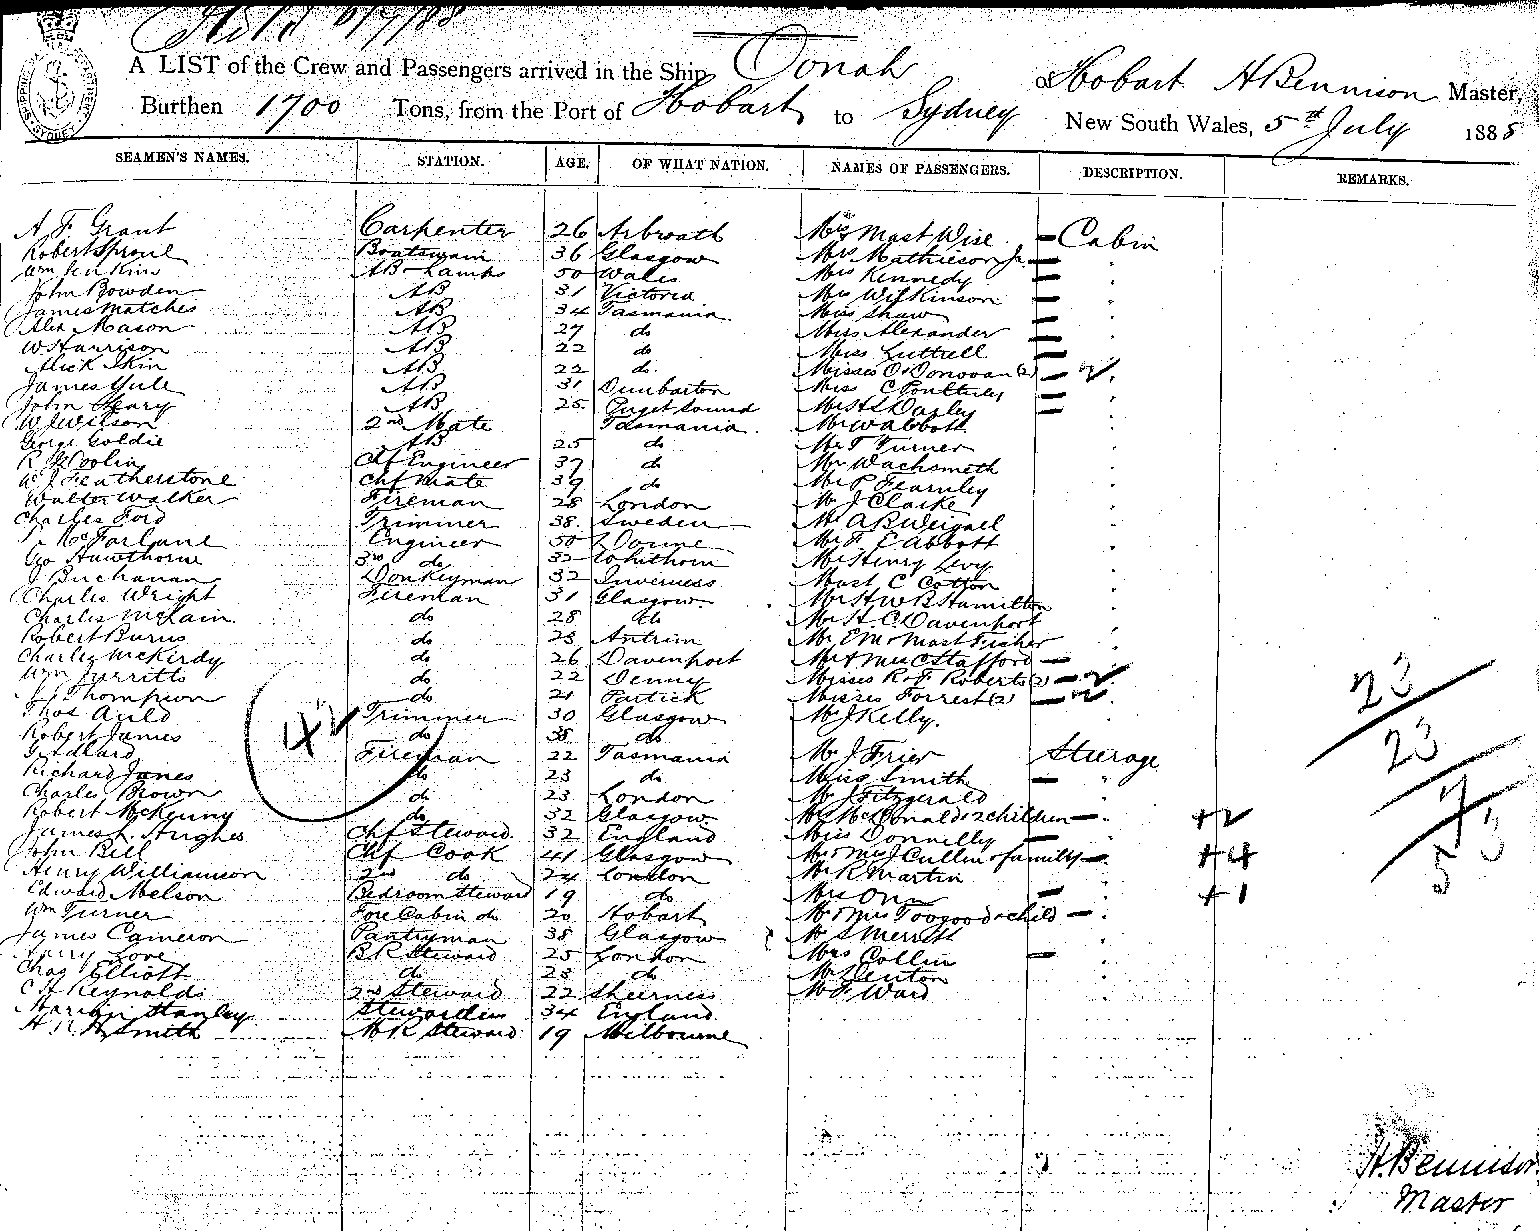 A LIST of the Crew and Passengers arrived in the Ship Oonah of Hobart A Bennison Master,
Burthen 1700 Tons, from the Port of Hobart to Sydney New South Wales, 5th July 1888
SEAMEN'S NAMES. STATION. AGE. OF WHAT NATION. NAMES OF PASSENGERS. DESCRIPTION. REMARKS.
A F Grant Carpenter 26 Arbroath Mast Wise Cabin
Robert Sproul Boatswain 36 Glasgow Mrs Mathieson Jr
Wm Jenkins AB Lamps 50 Wales Mrs Kennedy
John Bowden AB 31 Victoria Mrs Wilkinson
James Matches AB 34 Tasmania Miss Shaw
Alex Mason AB 27 do Miss Alexander
W Harrison AB 22 do Miss Luttrell
Alick Skin AB 22 do Misses O'Donovan (2) 2
James Yule AB 31 Dumbarton Miss C Poulterley
John Henry AB 25 Puget Sound Darley
W J Wilson 2nd Mate Tasmania Mr W Abbott
George Goldie AB 25 do Mr T Turner
R Chf Engineer 37 do Mr Wachsmeth
W J Featherstone Chf Mate 39 do Mr P Fearnley
Walter Walker Fireman 28 London Mr J Clarke
Charles Ford Trimmer 38 Sweden Mr A B Weigall
McFarlane Engineer 50 Doune Mr F E Abbott
Geo Hawthorne 3rd do 32 Whithorn Mr Henry Levy
J Buchanan Donkeyman 32 Inverness Mast C Cotton
Charles Wright Fireman 31 Glasgow Mr H W B Hamilton
Charles McLain do 28 do Mr H C Davenport
Robert Burns do 23 Antrim Mr E M & Mast Fisher
Charles McKirdy do 26 Davenport Mr & Miss C Stafford
Wm Jurritts do 22 Denny Misses R & F Roberts (2) 2
Thompson do 21 Partick Misses Forrest (2) 2
Thos Auld Trimmer 30 Glasgow Mr J Kelly.
Robert James do 38 do
G Adlard Fireman 22 Tasmania Mr J Frier Steerage
Richard Jones do 23 do Miss Smith
Charles Brown do 23 London Mr J Fitzgerald
Robert McKenny do 32 Glasgow Mrs McDonald & 2 children +2
James L. Hughes Chf Steward 32 England Miss Donnilly
John Bill Chf Cook 41 Glasgow Mr & Mrs J Cullin & family +4
Henry Williamson 2nd do 24 London Mr R Martin
Edward Melson Bedroom Steward 19 do Mrs Orr +1
Wm Turner Fore Cabin do 20 Hobart Mr & Mrs Toogood & child
James Cameron Pantryman 38 Glasgow Mr S Merrett
Harry Love B R Steward 25 London Mrs Collin
Chas Elliott do 23 do Mr Denton
C H Reynolds 2nd Steward 22 Sheerness Mr F Ward
Marion Stanley Stewardess 34 England
H R H Smith M R Steward 19 Melbourne
42
23
23
7
53
A Bennison
Master